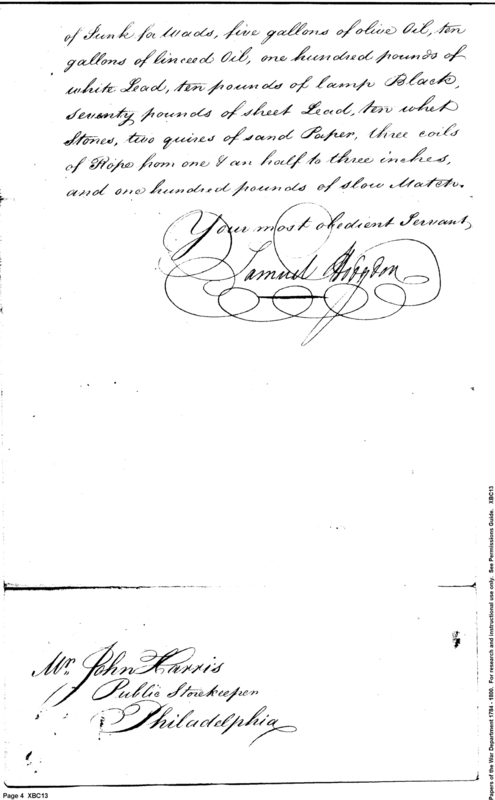 of Junk for Wads, five gallons of olive Oil, ten
gallons of linceed Oil, one hundred pounds of
white Lead, ten pounds of lamp Black,
seventy pounds of sheet Lead, ten whet
Stones, two quires of sand Paper, three coils
of Rope from one & an half to three inches,
and one hundred pounds of slow Match.
Your most obedient Servant,
Samuel Hodgdon
Mr. John Harris
Public Storekeeper
Philadelphia
Page 4 XBC13
Papers of the War Department 1784 - 1800. For research and instructional use only. See Permissions Guide. XBC13